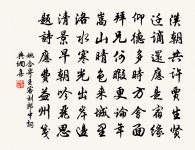 漢朝共許賈生賢
遷謫還應是宿緣
仰德多時方會面
拜兄何暇更論年
嵩山晴色來城裏
洛水寒光出岸邊
清景早朝吟麗思
題詩應費益州箋
姚合寄主客劉郎中